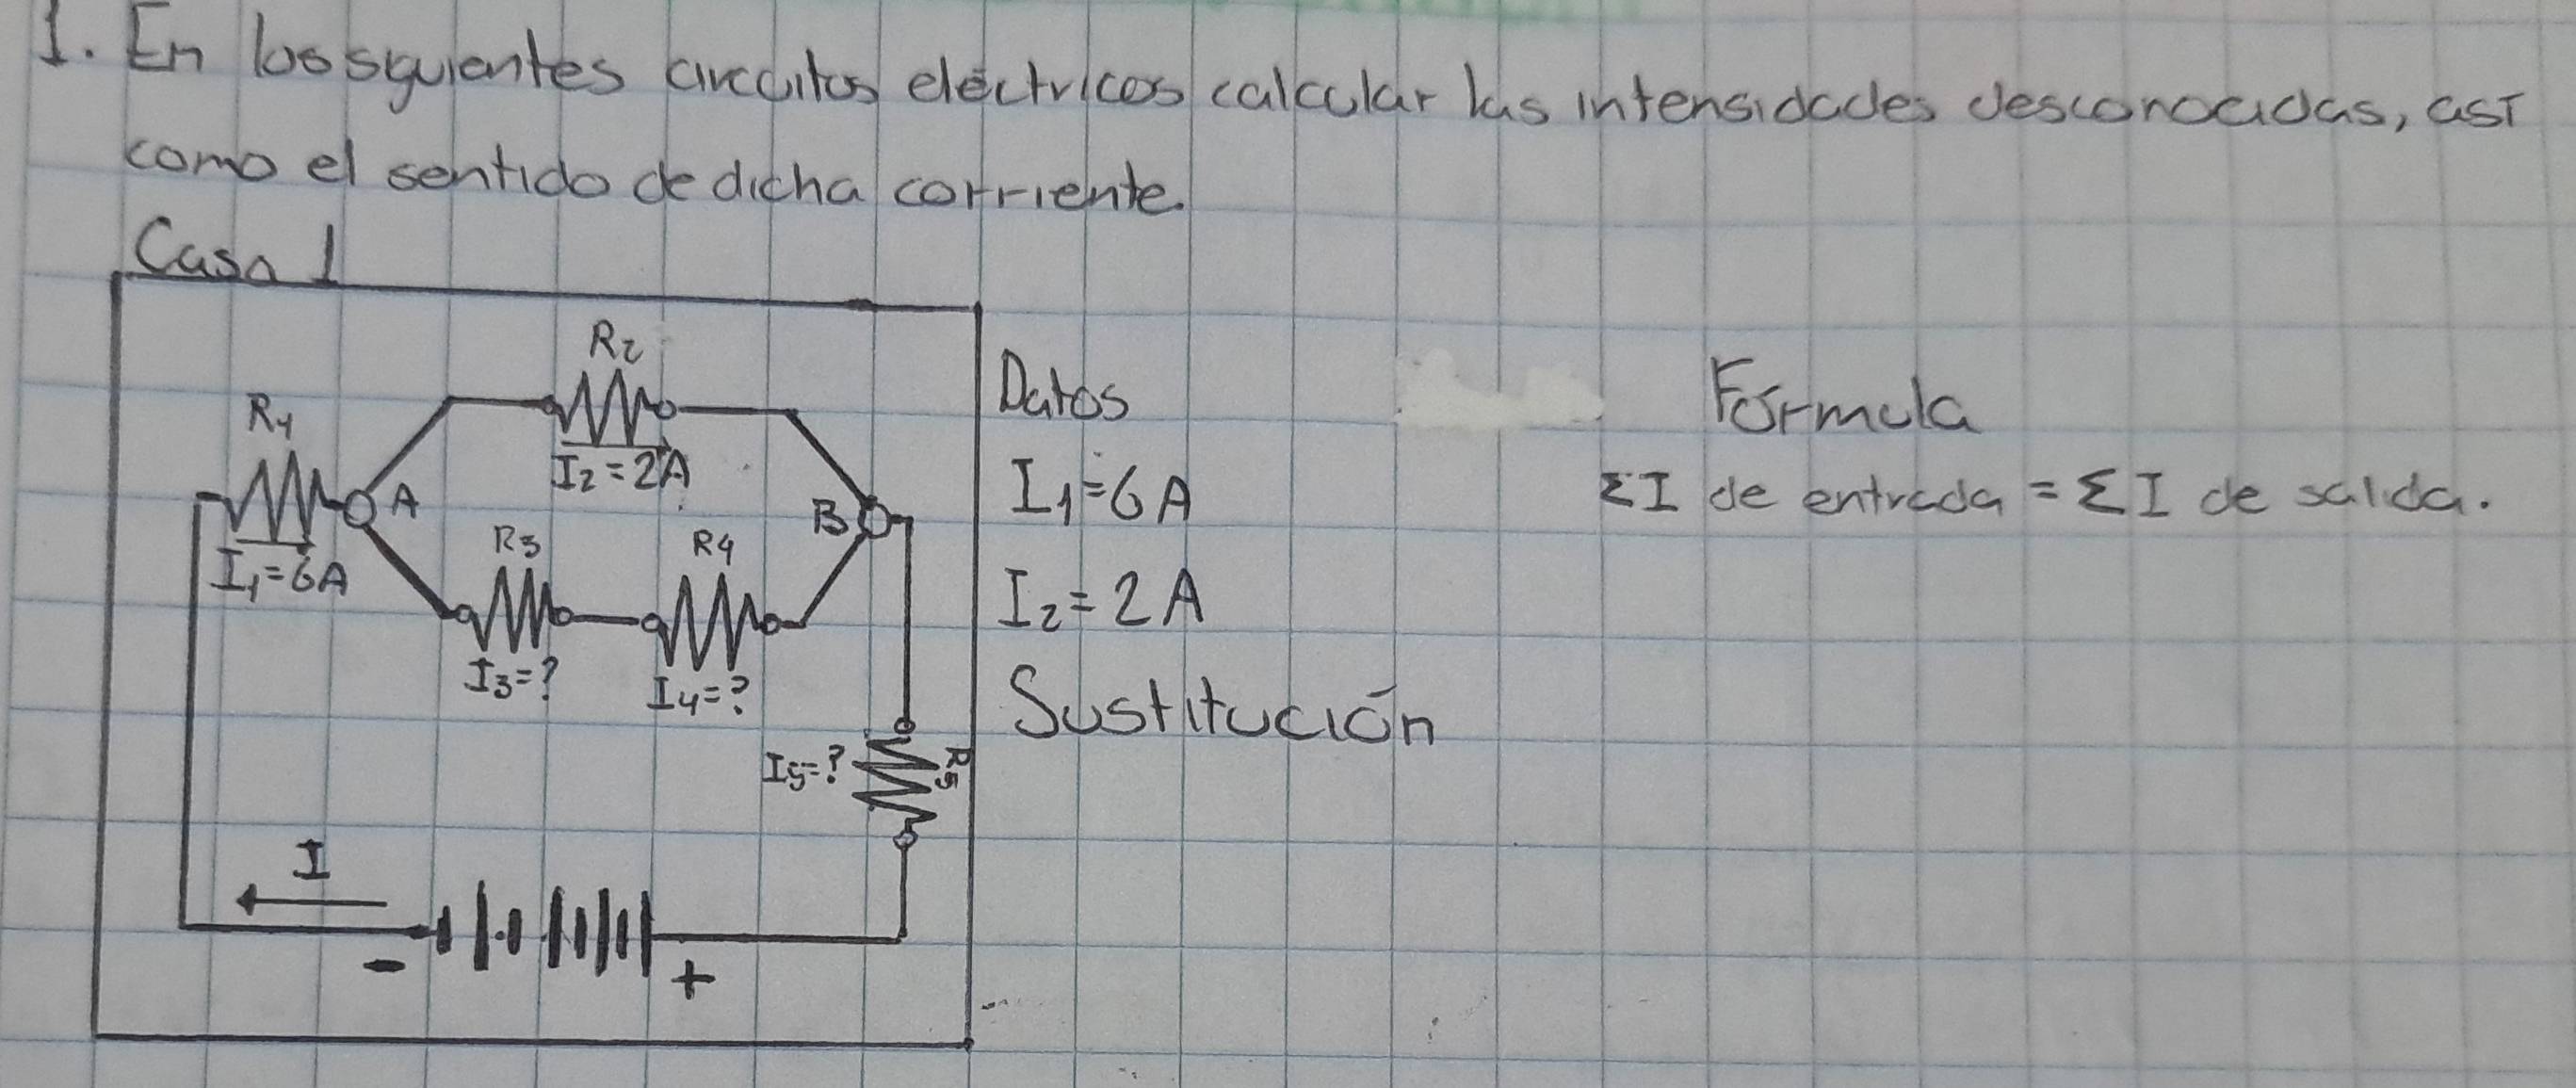 1. En los siguientes circuitos eléctricos calcular las intensidades desconocidas, así
como el sentido de dicha corriente.
Caso 1
R2
R1
I2=2A
A
B
I1=6A
R3
R4
I3=?
I4=?
I5=?
R5
I
-
+
Datos
I1=6A
I2=2A
Sustitución
Fórmula
ΣI de entrada = ΣI de salida.